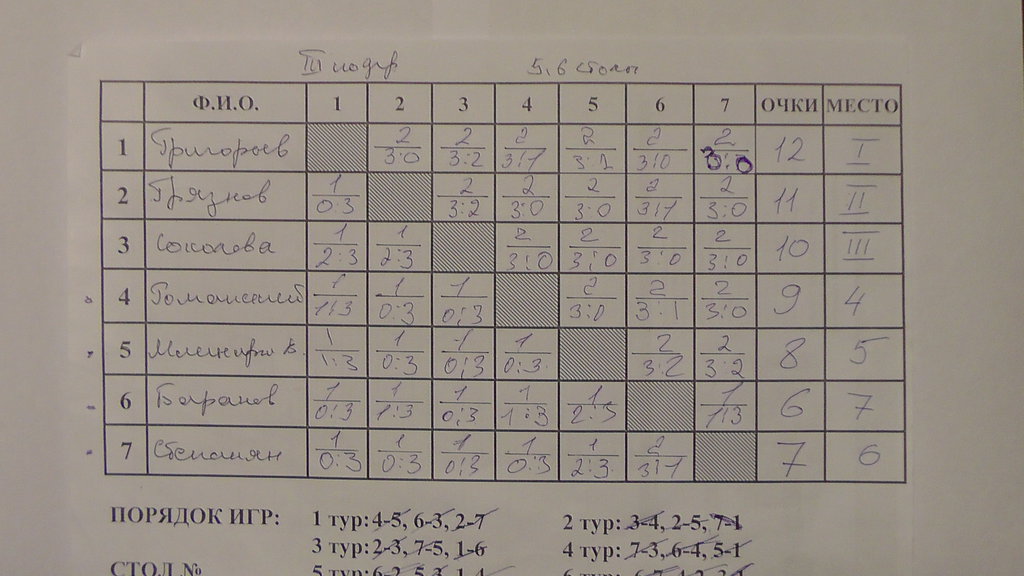 III подгр 5,6 столы
Ф.И.О. 1 2 3 4 5 6 7 ОЧКИ МЕСТО
1 Григорьев 2 2 2 2 2 2 12 I
3:0 3:2 3:1 3:1 3:0 3:0
2 Грязнов 1 2 2 2 2 2 11 II
0:3 3:2 3:0 3:0 3:1 3:0
3 Соколова 1 1 2 2 2 2 10 III
2:3 2:3 3:0 3:0 3:0 3:0
4 1 1 1 2 2 2 9 4
1:3 0:3 0:3 3:0 3:1 3:0
5 1 1 1 1 2 2 8 5
1:3 0:3 0:3 0:3 3:2 3:2
6 Баранов 1 1 1 1 1 1 6 7
0:3 1:3 0:3 1:3 2:3 1:3
7 Степанян 1 1 1 1 1 2 7 6
0:3 0:3 0:3 0:3 2:3 3:1
ПОРЯДОК ИГР: 1 тур: 4-5, 6-3, 2-7 2 тур: 3-4, 2-5, 7-1
3 тур: 2-3, 7-5, 1-6 4 тур: 7-3, 6-4, 5-1
СТОЛ № 5 тур: 6-2, 5-3, 1-4 6 тур: